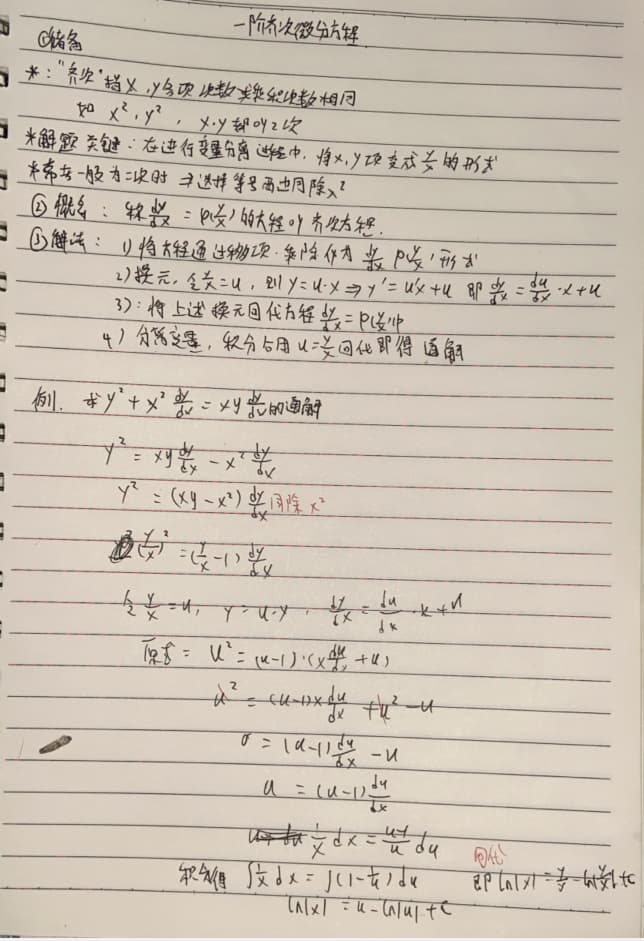 一阶齐次微分方程
①储备
*："齐次"指x,y各项次数类和次数相同
如 x², y², x·y 都叫2次
*解题关键：在进行变量分离过程中，将x,y项变成y/x的形式
*常在一般为二次时 ⇒选择等号两边同除x²
②概念：称dy/dx = φ(y/x)的方程叫齐次方程.
③解法：1)将方程通过移项·乘除化为 dy/dx φ(y/x)形式
2)换元,令y/x=u,则y=u·x⇒y'=u'x+u 即 dy/dx=du/dx·x+u
3):将上述换元回代方程dy/dx=φ(y/x)中
4)分离变量,积分后用u=y/x回代即得通解
例. 求y²+x² dy/dx=xy dy/dx的通解
y²=xy dy/dx-x² dy/dx
y²=(xy-x²) dy/dx 同除x²
(y/x)²=(y/x-1) dy/dx
令 y/x=u, y=u·x, dy/dx=du/dx·x+u
原式= u²=(u-1)·(x du/dx+u)
u²=(u-1)x du/dx+u²-u
0=(u-1) du/dx-u
u=(u-1) du/dx
1/x dx=u-1/u du
积分得 ∫1/x dx=∫(1-1/u) du 回代 即 ln|x|=y/x-ln|y/x|+c
ln|x|=u-ln|u|+c